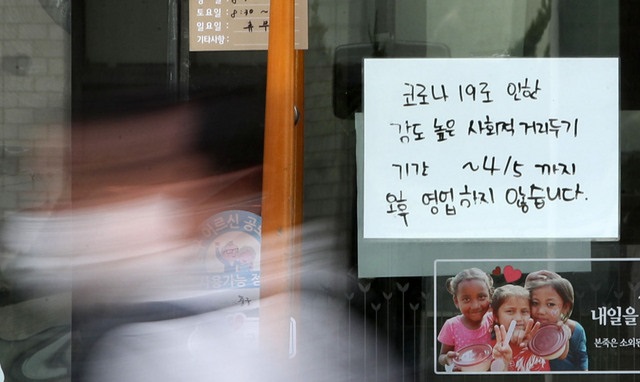 토요일 8:30 ~
일요일: 휴무
기타사항:
코로나 19로 인한
강도 높은 사회적 거리두기
기간 ~4/5 까지
오후 영업하지 않습니다.
내일을
본죽은 소외된